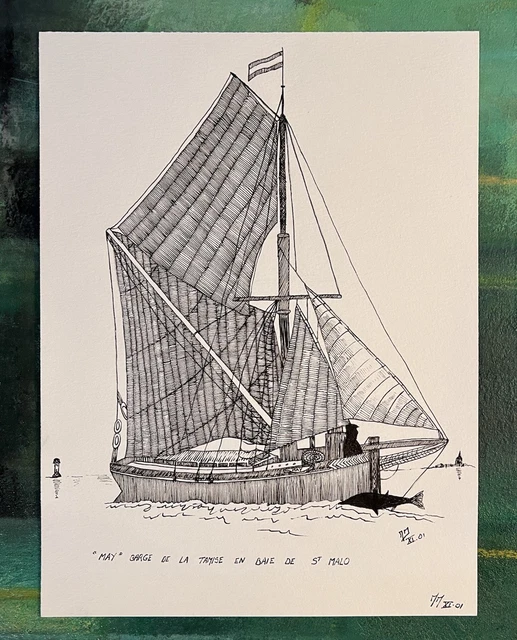 JM
XI.01
"MAY" BARGE DE LA TAMISE EN BAIE DE ST MALO
JM XI.01